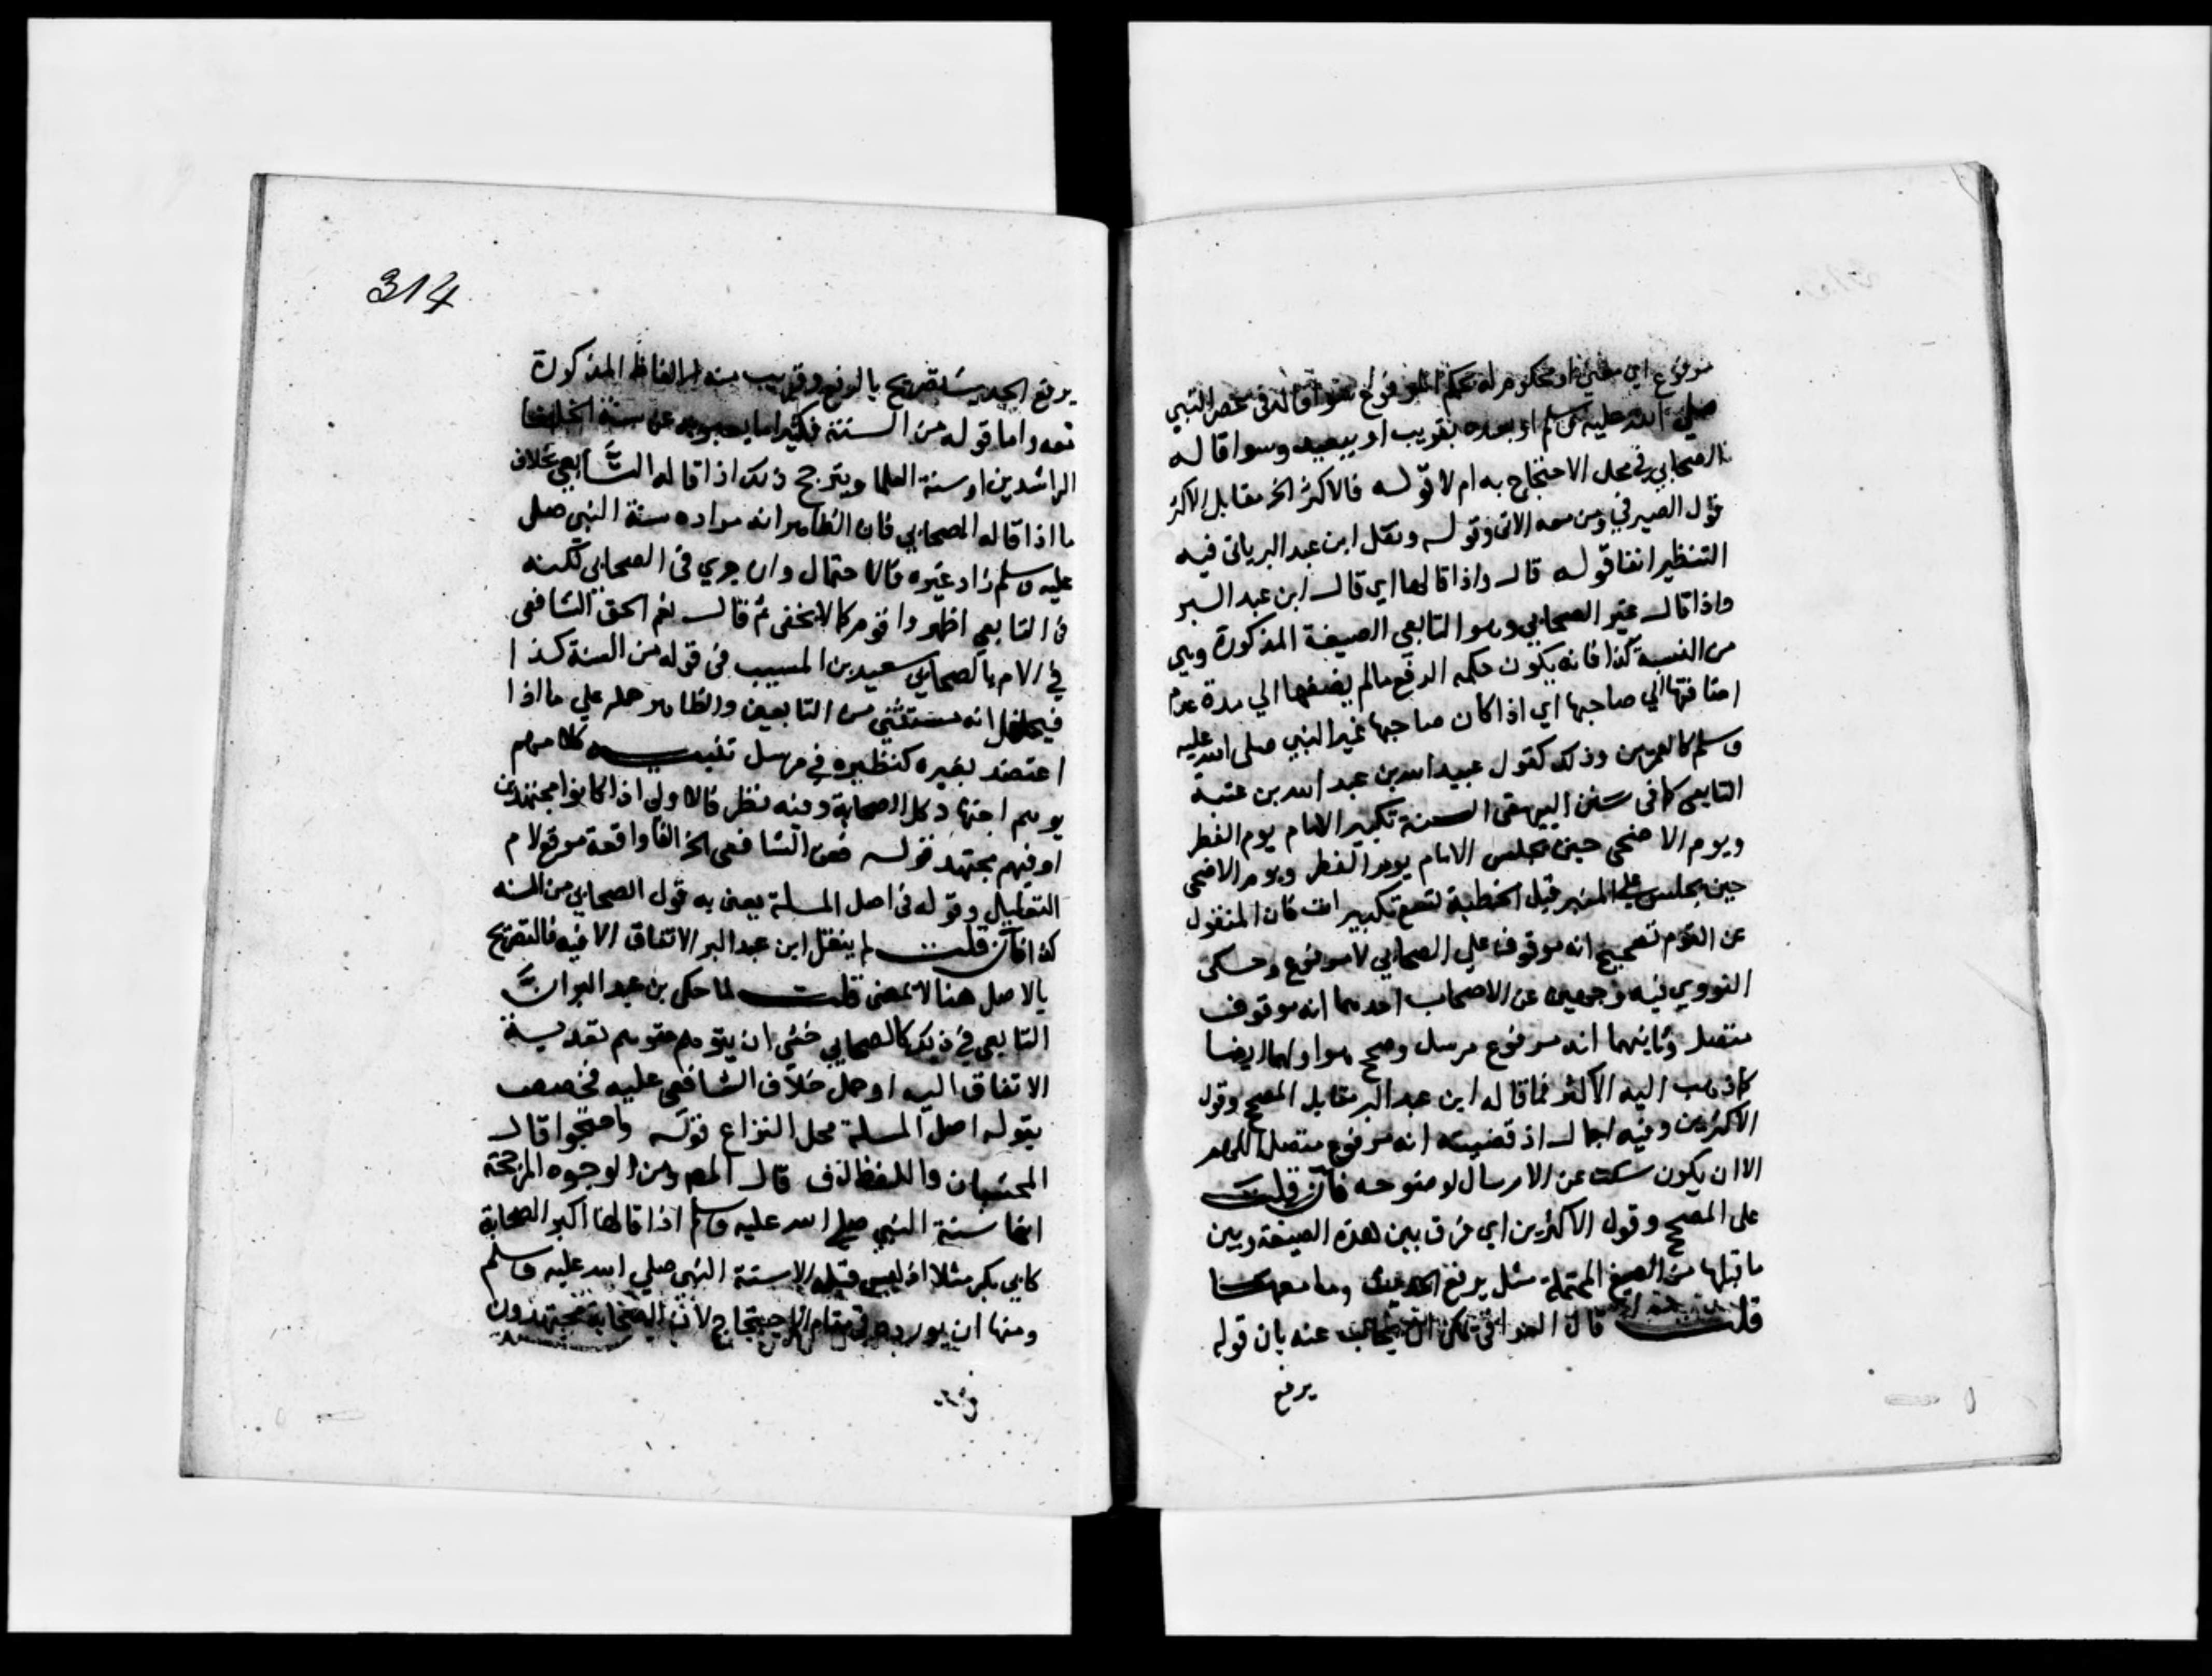 مرفوع اي معني او محكوم له بحكم المرفوع سوا قاله في عصر النبي
صلي الله عليه وسلم او بعده بقريب او ببعيد وسوا قاله
الصحابي في محل الاحتجاج به ام لا قوله فالاكثر الخ مقابل الاكثر
قول الصيرفي ومن معه الاتي وقوله ونقل ابن عبد البر ياتي فيه
التنظير انفا قوله قال واذا قالها اي قال ابن عبد البر
واذا قال غير الصحابي وهو التابعي الصيغة المذكورة وهي
من السنة كذا فانه يكون حكمه الرفع مالم يضفها الي مدة عدم
اضافتها الي صاحبها اي اذا كان صاحبها غير النبي صلي الله عليه
وسلم كالعمرين وذلك كقول عبيد الله بن عبد الله بن عتبة
التابعي كما في سنن البيهقي السنة تكبير الامام يوم الفطر
ويوم الاضحي حين يجلس الامام يوم الفطر ويوم الاضحي
حين يجلس علي المنبر قبل الخطبة تسع تكبيرات فان المنقول
عن القوم تصحيح انه موقوف علي الصحابي لا مرفوع وحكى
النووي فيه وجهين عن الاصحاب احدهما انه موقوف
متصل وثانيهما انه مرفوع مرسل وصحح هو اولهما ايضا
كما ذهب اليه الاكثر فما قاله ابن عبد البر مقابل المصحح وقول
الاكثرين وفيه اجمال اذ قضيته انه مرفوع متصل اللهم
الا ان يكون سكت عن الارسال لوضوحه فان قلت
على المصحح وقول الاكثرين اي فرق بين هذه الصيغة وبين
ما قبلها من الصيغ المحتملة مثل يرفع الحديث وما معها
قلت قال العراقي يمكن ان يجاب عنه بان قوله
يرفع
314
يرفع الحديث تصريح بالرفع وقريب منه الالفاظ المذكورة
معه واما قوله من السنة فكثيرا ما يعبر به عن سنة الخلفا
الراشدين او سنة العلما ويترجح ذلك اذا قاله التابعي بخلاف
ما اذا قاله الصحابي فان الظاهر انه مراده سنة النبي صلى
عليه وسلم زاد غيره فالاحتمال وان جري في الصحابي لكنه
في التابعي اظهر واقوم كما لا يخفى ثم قال نعم الحق الشافعي
في الام بالصحابي سعيد بن المسيب في قوله من السنة كذا
فيحتمل انه مستثني من التابعين والظاهر حمله علي ما اذا
اعتضد بغيره كنظيره في مرسل تنبيه كلامهم
يوهم اجتهاد كل الصحابة وفيه نظر فالاولي اذا كانوا مجتهدين
او فيهم مجتهد قوله فعن الشافعي الخ الفا واقعة موقع لام
التعليل وقوله في اصل المسلة يعني به قول الصحابي من السنه
كذا فان قلت لم ينقل ابن عبد البر الاتفاق الا فيه فالتصريح
بالاصل هنا لا لمعنى قلت لما حكي بن عبد البر ان
التابعي في ذلك كالصحابي خشي ان يتوهم متوهم تعدية
الاتفاق اليه او حمل خلاف الشافعي عليه فخصصه
بقوله اصل المسلة محل النزاع قوله واحتجوا قال
المحشيان واللفظ لاف قال المص ومن الوجوه المرجحة
انها سنة النبي صلي الله عليه وسلم اذا قالها اكبر الصحابة
كابي بكر مثلا اذ ليس قبله الا سنة النبي صلي الله عليه وسلم
ومنها ان يورده في مقام الاحتجاج لان الصحابة مجتهدون